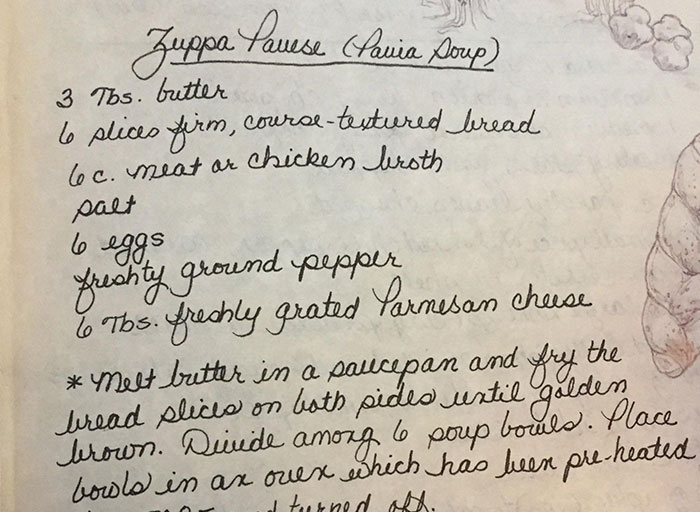 Zuppa Pavese (Pavia Soup)
3 Tbs. butter
6 slices firm, course-textured bread
6 c. meat or chicken broth
salt
6 eggs
freshty ground pepper
6 Tbs. freshly grated Parmesan cheese
* Melt butter in a saucepan and fry the
bread slices on both sides until golden
brown. Divide among 6 soup bowls. Place
bowls in an oven which has been pre-heated
and turned off.